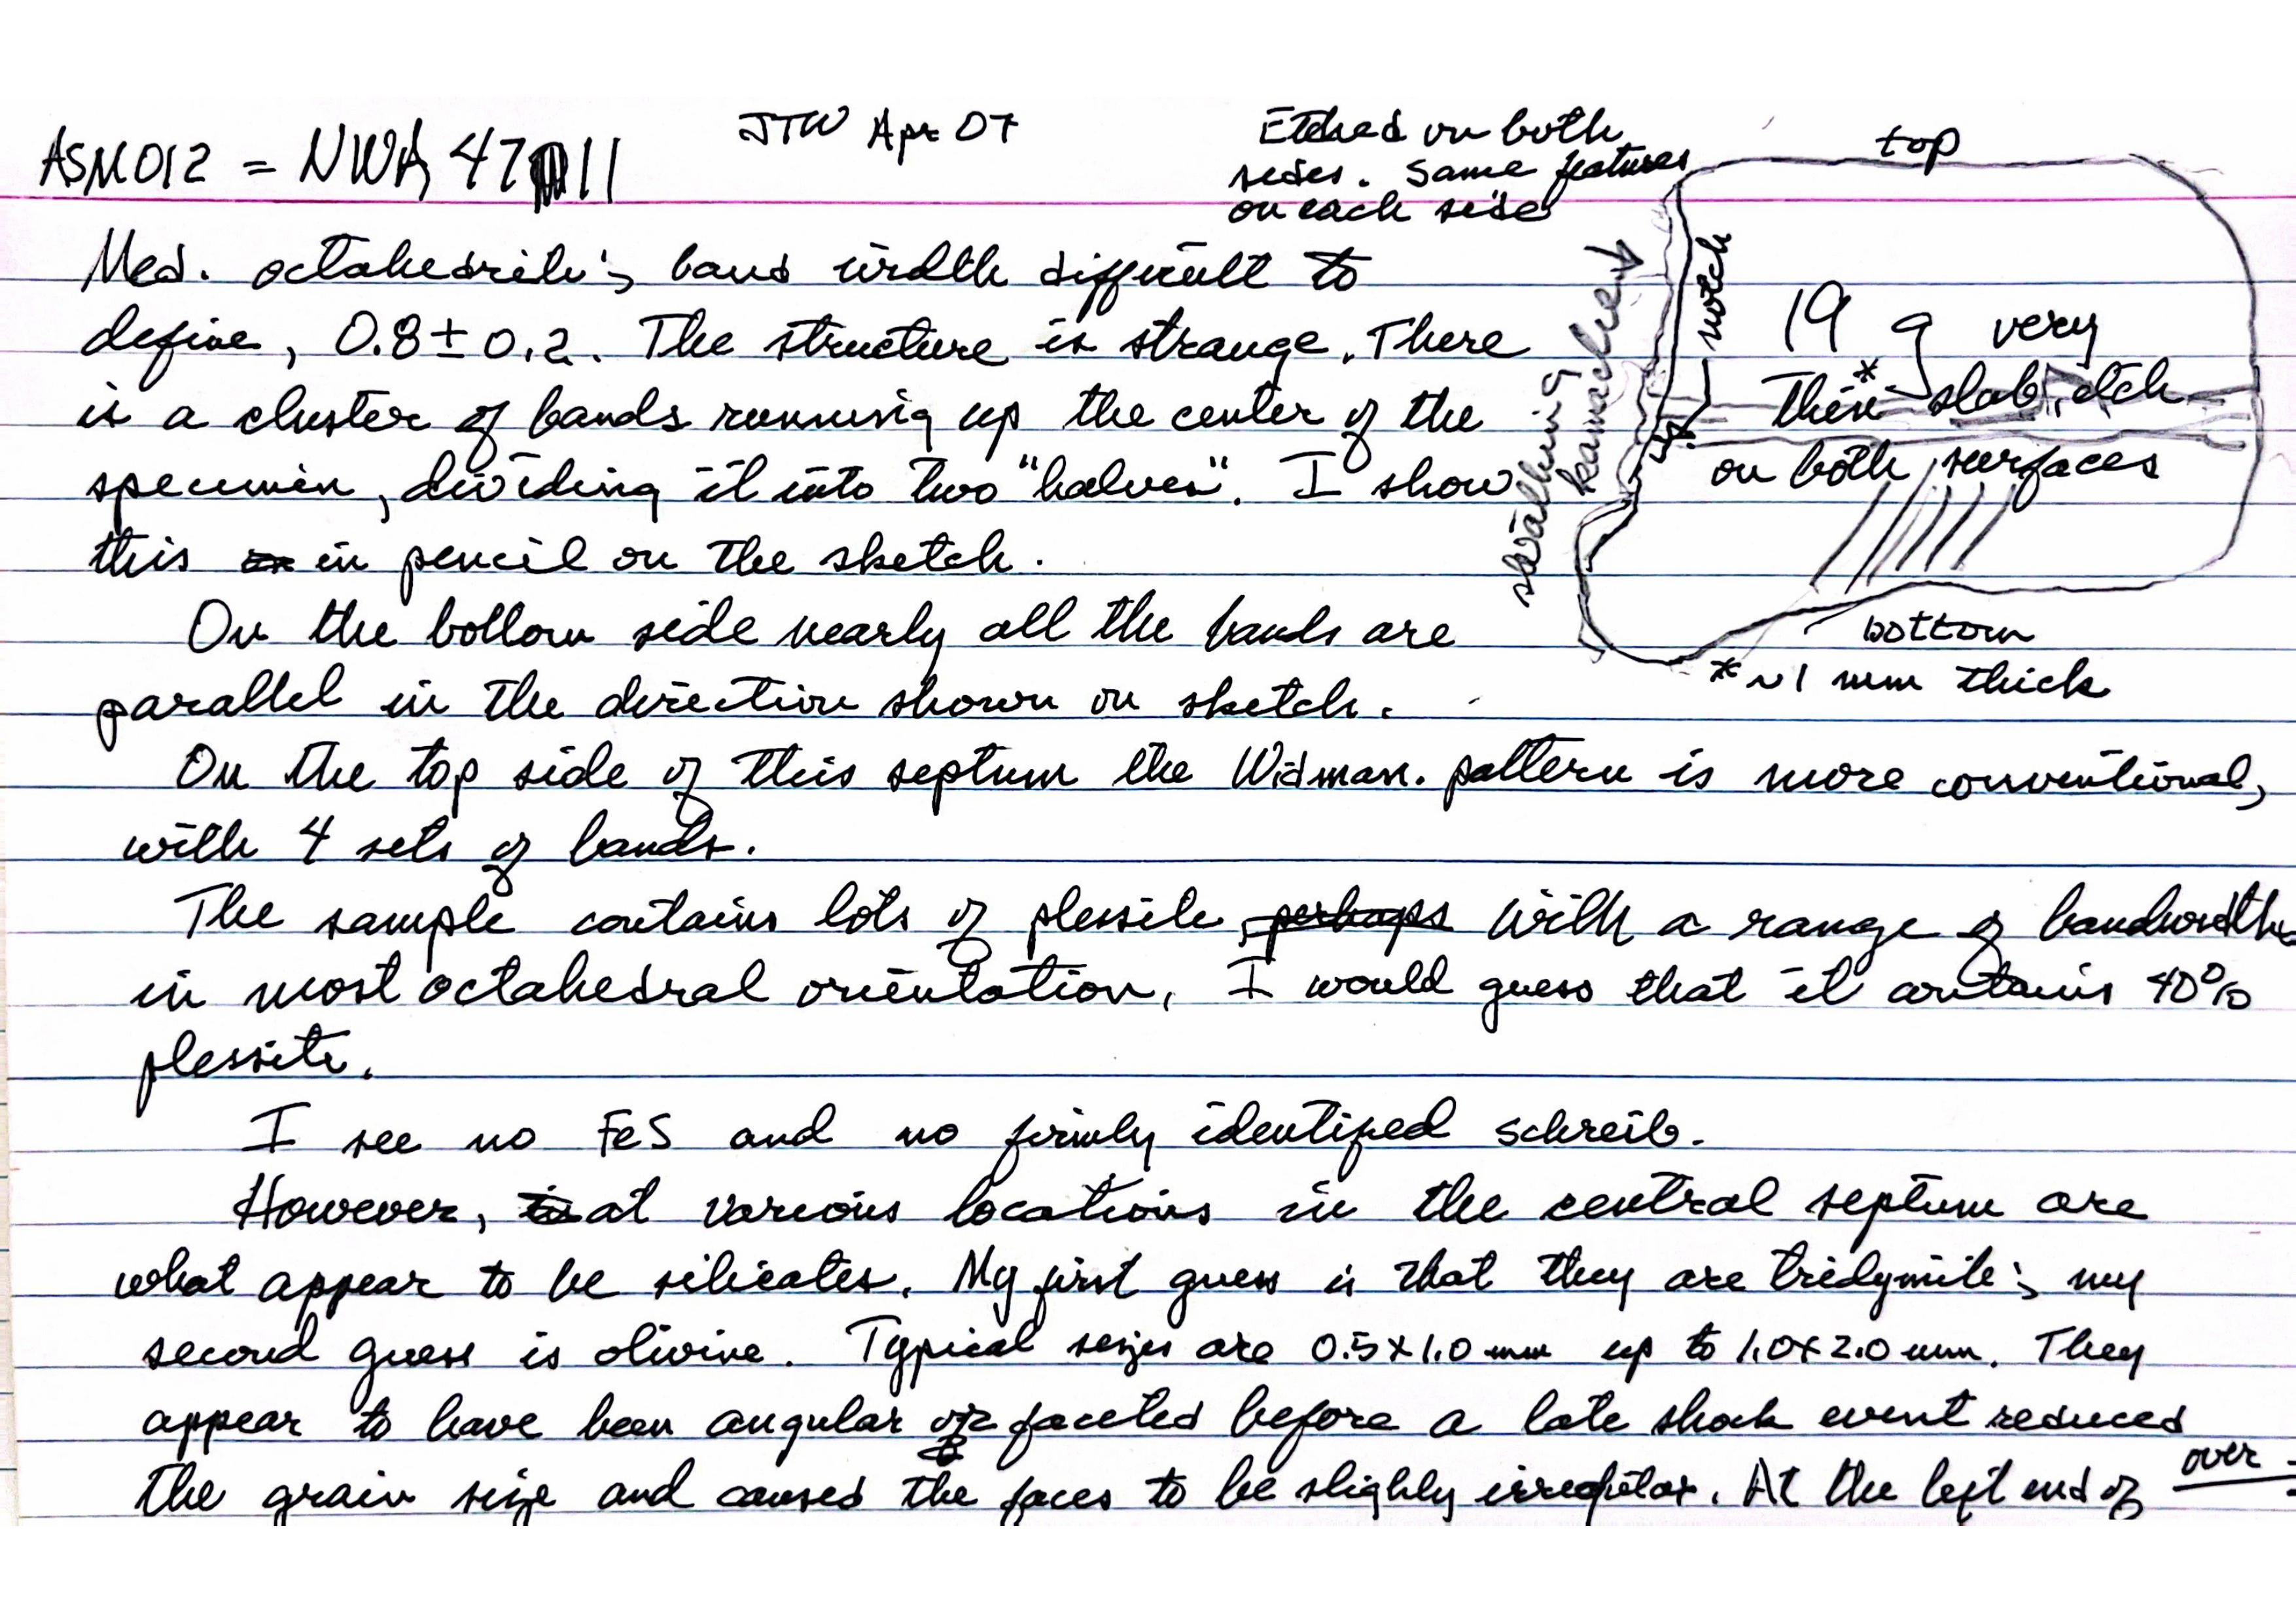 ASM012 = NWA 4711
JTW Apr 07
Etched on both
sides. Same features
on each side
Med. octahedrite; band width difficult to
define, 0.8 ± 0.2. The structure is strange. There
is a cluster of bands running up the center of the
specimen, dividing it into two "halves". I show
this in pencil on the sketch.
On the bottom side nearly all the bands are
parallel in the direction shown on sketch.
top
notch
swathing kamacite
19 g very
thin* slab, etch
on both surfaces
bottom
* ~1 mm thick
On the top side of this septum the Widman. pattern is more conventional,
with 4 sets of bands.
The sample contains lots of plessite, perhaps with a range of bandwidths
in most octahedral orientation. I would guess that it contains 40%
plessite.
I see no FeS and no firmly identified schreib.
However, at various locations in the central septum are
what appear to be silicates. My first guess is that they are tridymite; my
second guess is olivine. Typical sizes are 0.5×1.0 mm up to 1.0×2.0 mm. They
appear to have been angular or faceted before a late shock event reduced
the grain size and caused the faces to be slighly irregular. At the left end of
over